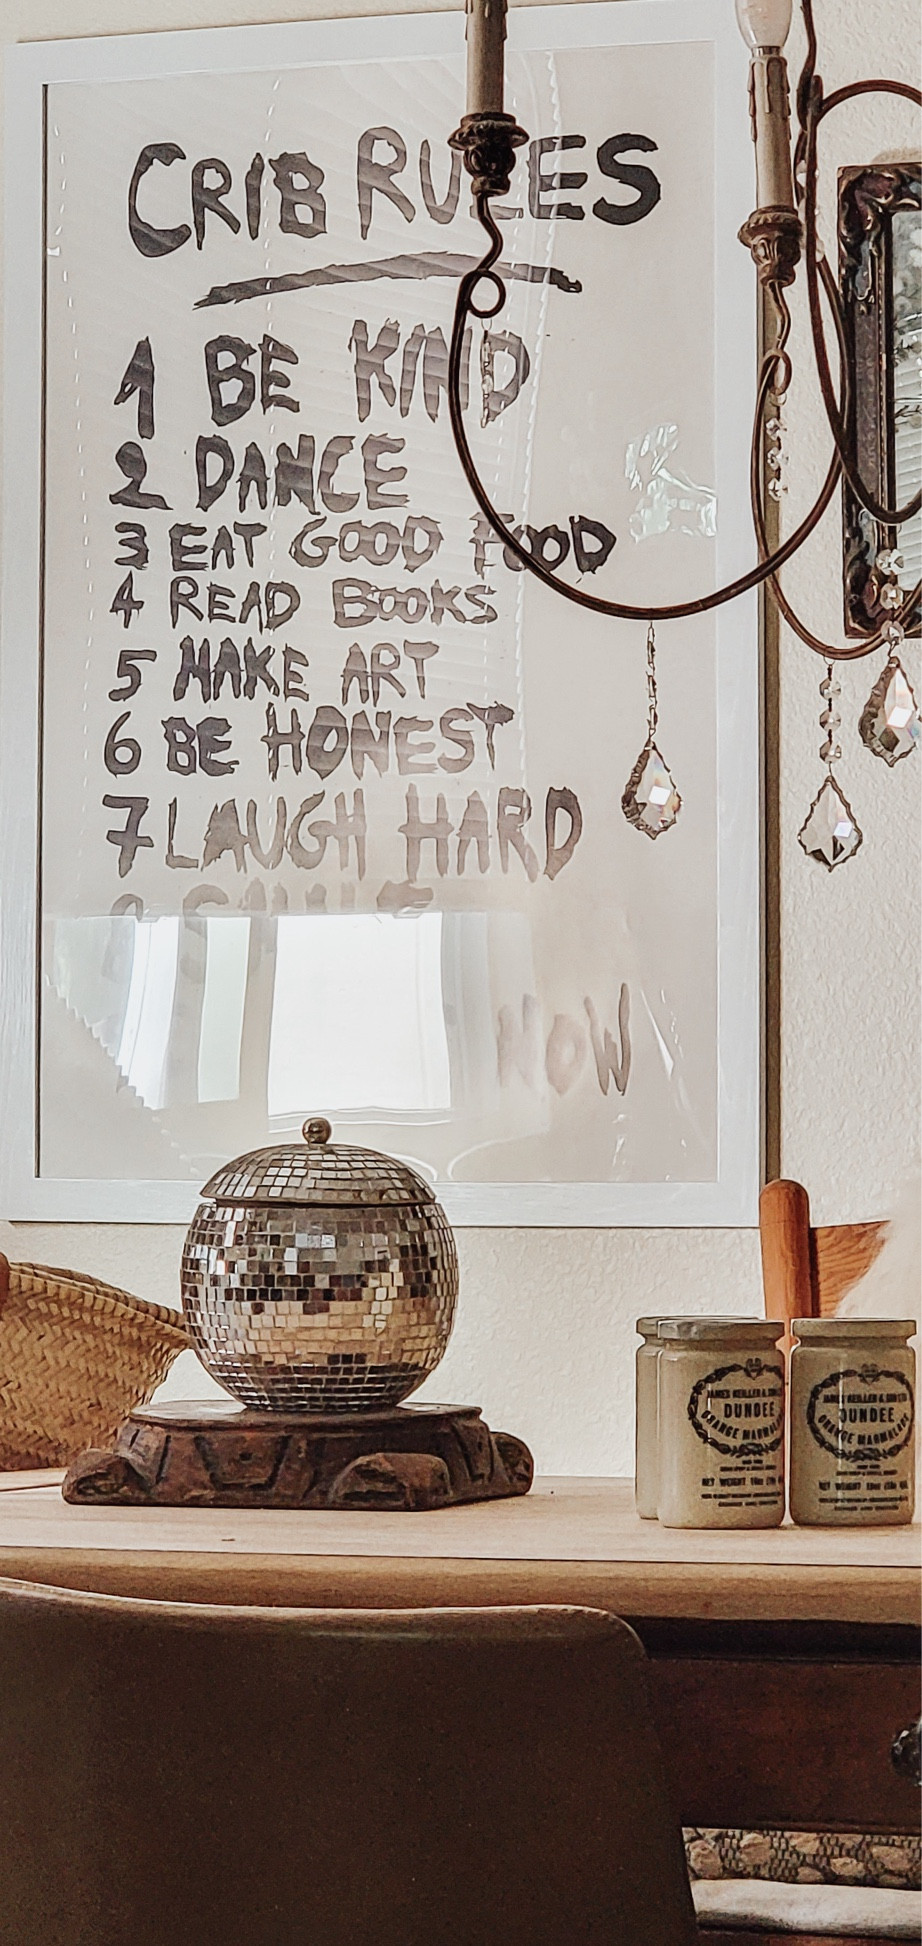 CRIB RULES
1 BE KIND
2 DANCE
3 EAT GOOD FOOD
4 READ BOOKS
5 MAKE ART
6 BE HONEST
7 LAUGH HARD
NOW
JAMES KEILLER &
DUNDEE
ORANGE MARMALADE
NET WEIGHT
JAMES KEILLER &
DUNDEE
ORANGE MARMALADE
NET WEIGHT